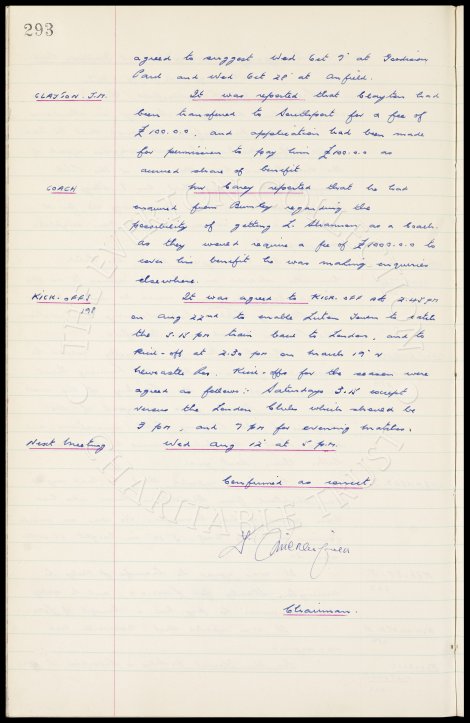 293
agreed to suggest Wed Oct 7 at Goodison
Park and Wed Oct 28 at Anfield.
CLAYTON. J.M. It was reported that Clayton had
been transferred to Southport for a fee of
£100.0.0. and application had been made
for permission to pay him £100.0.0 as
accrued share of benefit
COACH Mr Carey reported that he had
enquired from Burnley regarding the
possibility of getting L. Shannon as a Coach.
As they would require a fee of £1000.0.0 to
cover his benefit he was making enquiries
elsewhere.
KICK-OFFS It was agreed to KICK-OFF At 2.45 PM
on Aug 22nd to enable Luton Town to catch
the 5.15 pm train back to London, and to
Kick-off at 2.30 pm on March 19 v
Newcastle Res. Kick-offs for the season were
agreed as follows: Saturdays 3.15 except
versus the London Clubs which should be
3 pm, and 7 PM for evening matches.
Next Meeting Wed Aug 12 at 5 P.M.
Confirmed as correct.
Chairman.
THE EVERTON COLLECTION
CHARITABLE TRUST